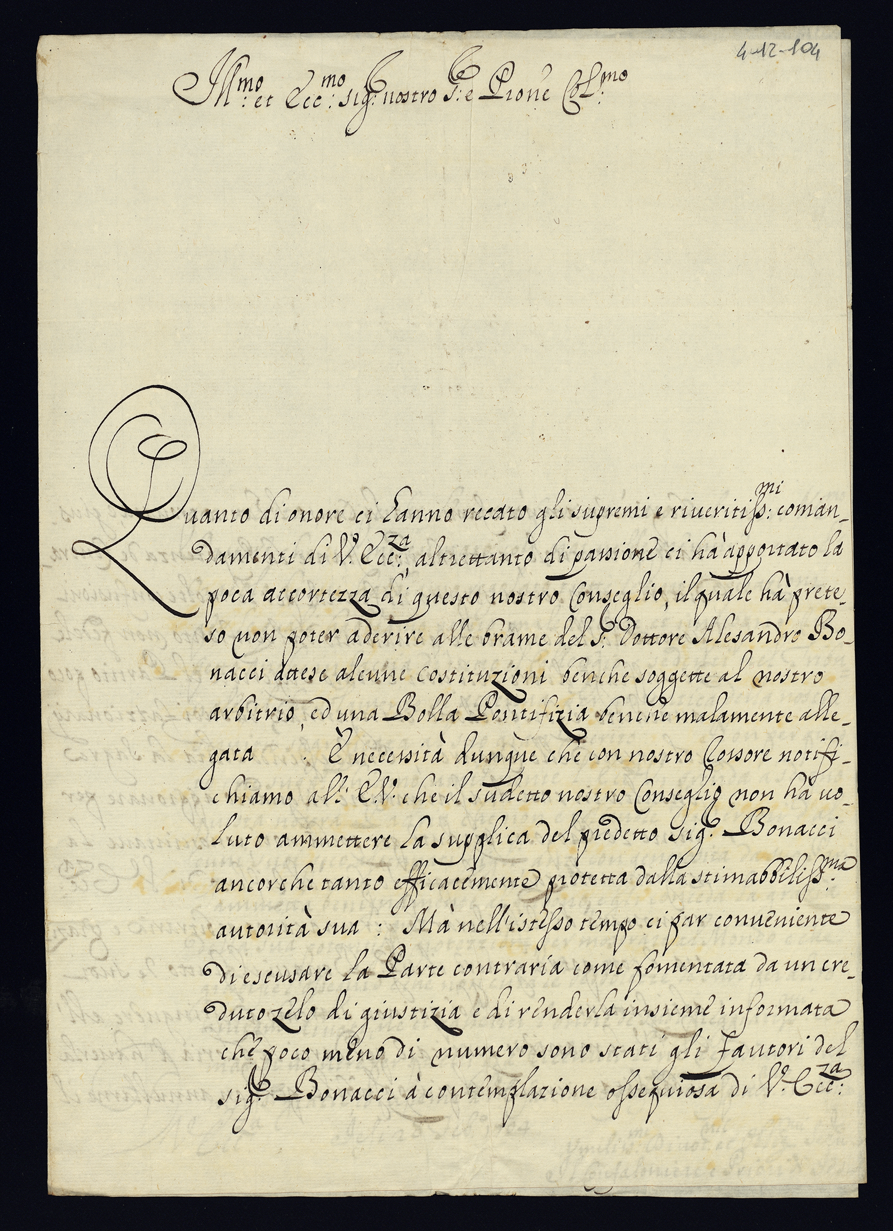 4-12-104
Ill:mo et Ecc:mo sig: nostro S:e P̃rone Col:mo
Quanto di onore ci hanno recato gli supremi e riveritiss:mi coman-
damenti di V. Ecc:za altrettanto di passione ci hà apportato la
poca accortezza di questo nostro Conseglio, il quale hà prete-
so non poter aderire alle brame del S: Dottore Alesandro Bo-
nacci attese alcune Costituzioni benche soggette al nostro
arbitrio, ed una Bolla Pontifizia benche malamente alle-
gata. È necessità dunque che con nostro Rossore notifi-
chiamo all' E.V. che il sudetto nostro Conseglio non hà vo-
luto ammettere la supplica del predetto sig: Bonacci
ancorche tanto efficacemente protetta dalla stimabbiliss:ma
autorità sua: Mà nell'istesso tempo ci par conveniente
di escusare la Parte contraria come fomentata da un cre-
duto zelo di giustizia e di renderla insieme informata
che poco meno di numero sono stati gli Fautori del
sig: Bonacci à contemplazione ossequiosa di V. Ecc:za